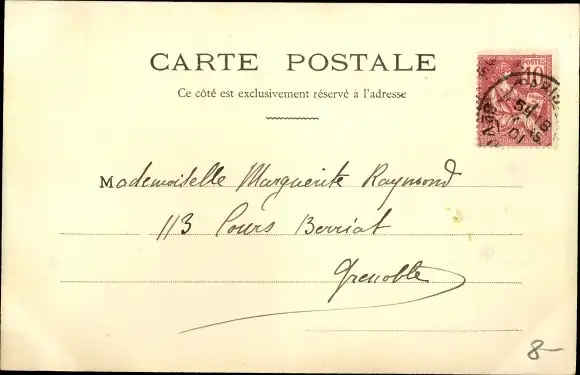 CARTE POSTALE
Ce côté est exclusivement réservé à l'adresse
POSTES
10
Mademoiselle Marguerite Raymond
113 Cours Berriat
Grenoble
8-